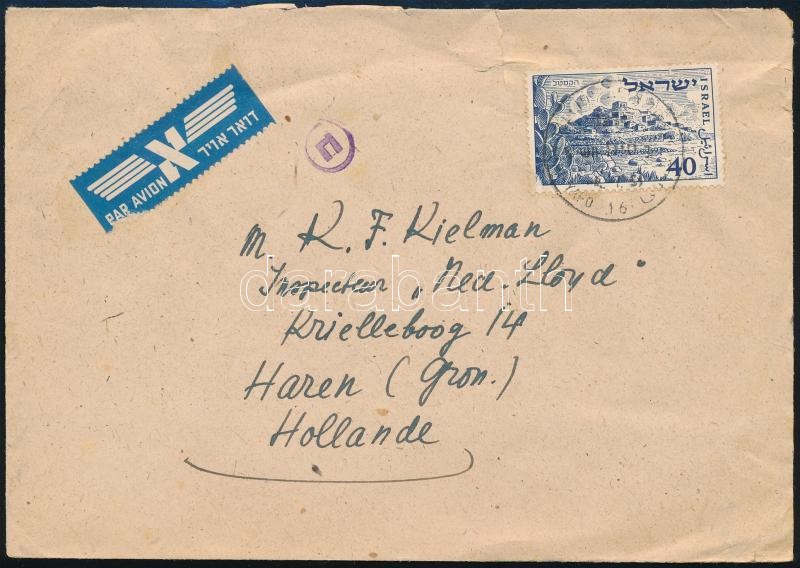 PAR AVION דואר אויר
ישראל
הקסטל
ISRAEL
اسرائيل
40
YAFO
16
M. K. F. Kielman
Inspecteur „Ned. Lloyd"
darabanth
Krielleboog 14
Haren (Gron.)
Hollande